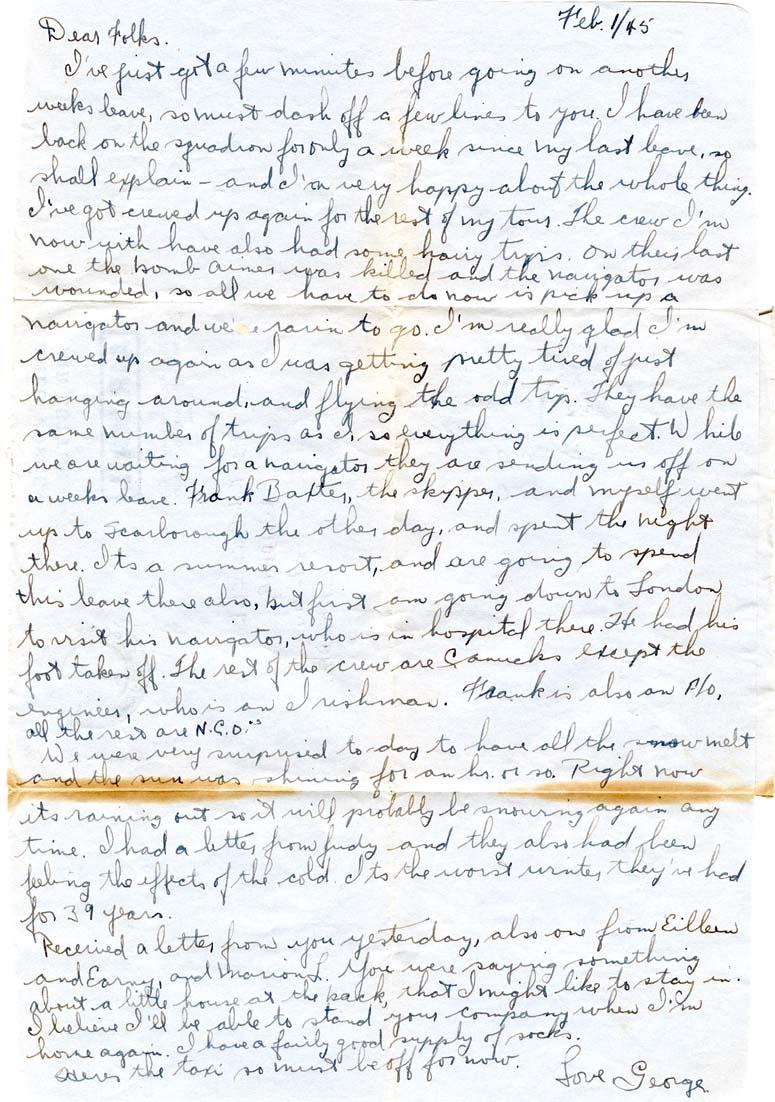 Feb. 1/45
Dear Folks.
I've just got a few minutes before going on another
weeks leave, so must dash off a few lines to you. I have been
back on the squadron for only a week since my last leave, so
shall explain - and I'm very happy about the whole thing.
I've got crewed up again for the rest of my tour. The crew I'm
now with have also had some hairy trips. On their last
one the bomb aimer was killed and the navigator was
wounded, so all we have to do now is pick up a
navigator and we're rarin to go. I'm really glad I'm
crewed up again as I was getting pretty tired of just
hanging around, and flying the odd trip. They have the
same number of trips as I, so everything is perfect. While
we are waiting for a navigator they are sending us off on
a weeks leave. Frank Baxter, the skipper, and myself went
up to Scarborough the other day, and spent the night
there. Its a summer resort, and are going to spend
this leave there also, but first am going down to London
to visit his navigator, who is in hospital there. He had his
foot taken off. The rest of the crew are Canucks except the
engineer, who is an Irishman. Frank is also an P/O,
all the rest are N.C.O.s
We were very surprised to day to have all the snow melt
and the sun was shining for an hr. or so. Right now
its raining out so it will probably be snowing again any
time. I had a letter from Judy and they also had been
feeling the effects of the cold. Its the worst winter they've had
for 39 years.
Received a letter from you yesterday, also one from Eilleen
and Earny, and Marion L. You were saying something
about a little house at the back, that I might like to stay in.
I believe I'll be able to stand your company when I'm
home again. I have a fairly good supply of socks.
Heres the taxi so must be off for now.
Love George.